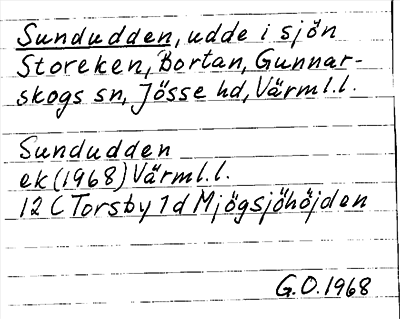 Sundudden, udde i sjön
Storeken, Bortan, Gunnar-
skogs sn, Jösse hd, Värml.l.
Sundudden
ek (1968) Värml.l.
12 C Torsby 1 d Mjögsjöhöjden
G.O. 1968